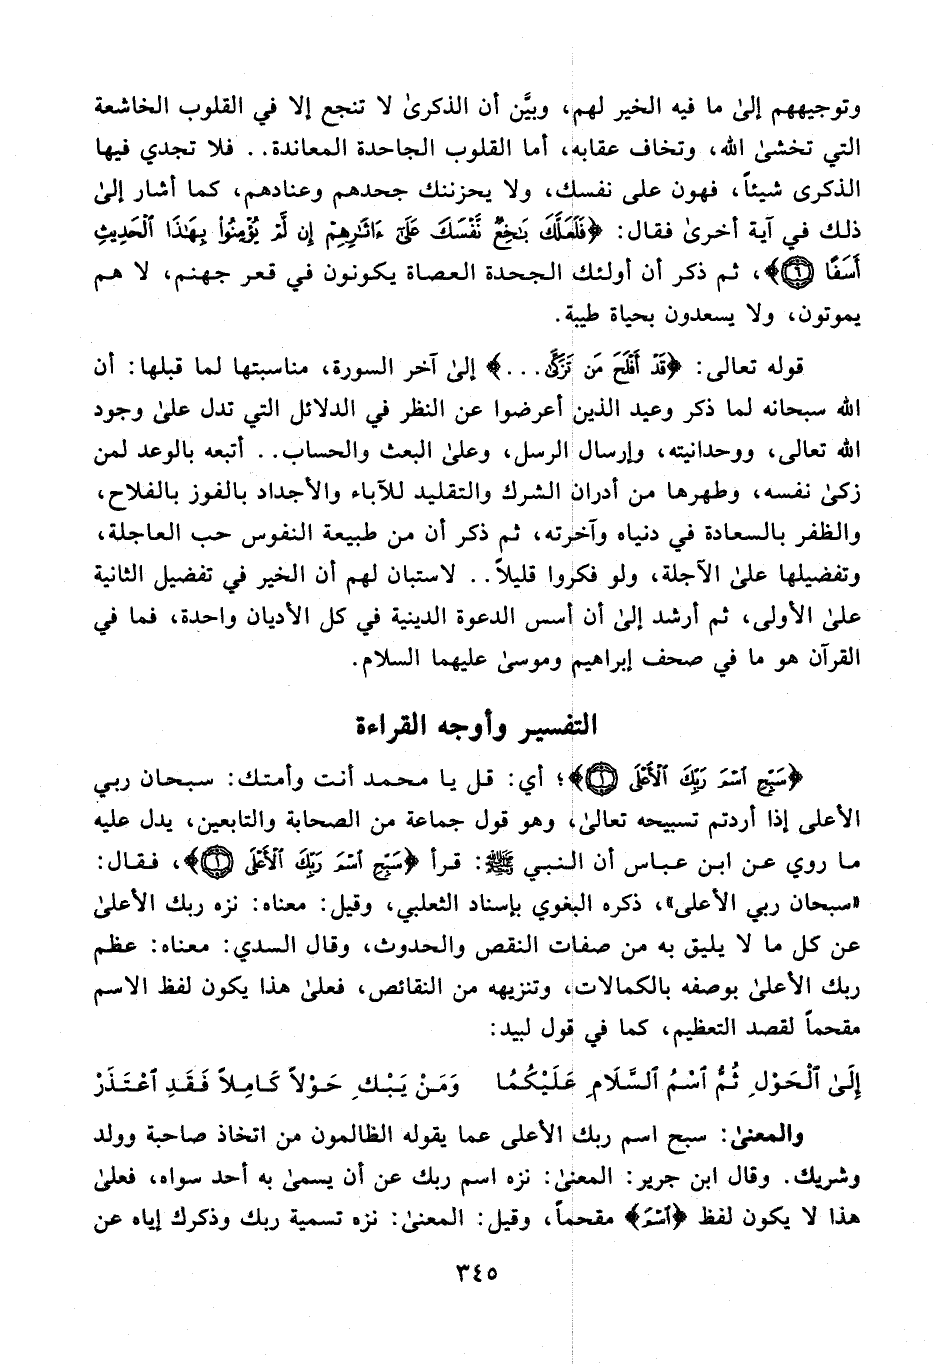 وتوجيههم إلىٰ ما فيه الخير لهم، وبيَّن أن الذكرىٰ لا تنجع إلا في القلوب الخاشعة
التي تخشىٰ الله، وتخاف عقابه، أما القلوب الجاحدة المعاندة.. فلا تجدي فيها
الذكرى شيئاً، فهون على نفسك، ولا يحزننك جحدهم وعنادهم، كما أشار إلىٰ
ذلك في آية أخرىٰ فقال: ﴿فَلَعَلَّكَ بَٰخِعٌ نَّفْسَكَ عَلَىٰٓ ءَاثَٰرِهِمْ إِن لَّمْ يُؤْمِنُوا۟ بِهَٰذَا ٱلْحَدِيثِ
أَسَفًا ٦﴾، ثم ذكر أن أولئك الجحدة العصاة يكونون في قعر جهنم، لا هم
يموتون، ولا يسعدون بحياة طيبة.
قوله تعالى: ﴿قَدْ أَفْلَحَ مَن تَزَكَّىٰ...﴾ إلىٰ آخر السورة، مناسبتها لما قبلها: أن
الله سبحانه لما ذكر وعيد الذين أعرضوا عن النظر في الدلائل التي تدل علىٰ وجود
الله تعالى، ووحدانيته، وإرسال الرسل، وعلىٰ البعث والحساب.. أتبعه بالوعد لمن
زكىٰ نفسه، وطهرها من أدران الشرك والتقليد للآباء والأجداد بالفوز بالفلاح،
والظفر بالسعادة في دنياه وآخرته، ثم ذكر أن من طبيعة النفوس حب العاجلة،
وتفضيلها علىٰ الآجلة، ولو فكروا قليلاً.. لاستبان لهم أن الخير في تفضيل الثانية
علىٰ الأولى، ثم أرشد إلىٰ أن أسس الدعوة الدينية في كل الأديان واحدة، فما في
القرآن هو ما في صحف إبراهيم وموسىٰ عليهما السلام.
التفسير وأوجه القراءة
﴿سَبِّحِ ٱسْمَ رَبِّكَ ٱلْأَعْلَى ١﴾؛ أي: قل يا محمد أنت وأمتك: سبحان ربي
الأعلى إذا أردتم تسبيحه تعالىٰ، وهو قول جماعة من الصحابة والتابعين، يدل عليه
ما روي عن ابن عباس أن النبي ﷺ: قرأ ﴿سَبِّحِ ٱسْمَ رَبِّكَ ٱلْأَعْلَى ١﴾، فقال:
«سبحان ربي الأعلى»، ذكره البغوي بإسناد الثعلبي، وقيل: معناه: نزه ربك الأعلىٰ
عن كل ما لا يليق به من صفات النقص والحدوث، وقال السدي: معناه: عظم
ربك الأعلىٰ بوصفه بالكمالات، وتنزيهه من النقائص، فعلىٰ هذا يكون لفظ الاسم
مقحماً لقصد التعظيم، كما في قول لبيد:
إِلَىٰ ٱلْحَوْلِ ثُمَّ ٱسْمُ ٱلسَّلَامِ عَلَيْكُمَا وَمَنْ يَبْكِ حَوْلاً كَامِلاً فَقَدِ ٱعْتَذَرْ
والمعنىٰ: سبح اسم ربك الأعلى عما يقوله الظالمون من اتخاذ صاحبة وولد
وشريك. وقال ابن جرير: المعنىٰ: نزه اسم ربك عن أن يسمىٰ به أحد سواه، فعلىٰ
هذا لا يكون لفظ ﴿ٱسْمَ﴾ مقحماً، وقيل: المعنىٰ: نزه تسمية ربك وذكرك إياه عن
٣٤٥